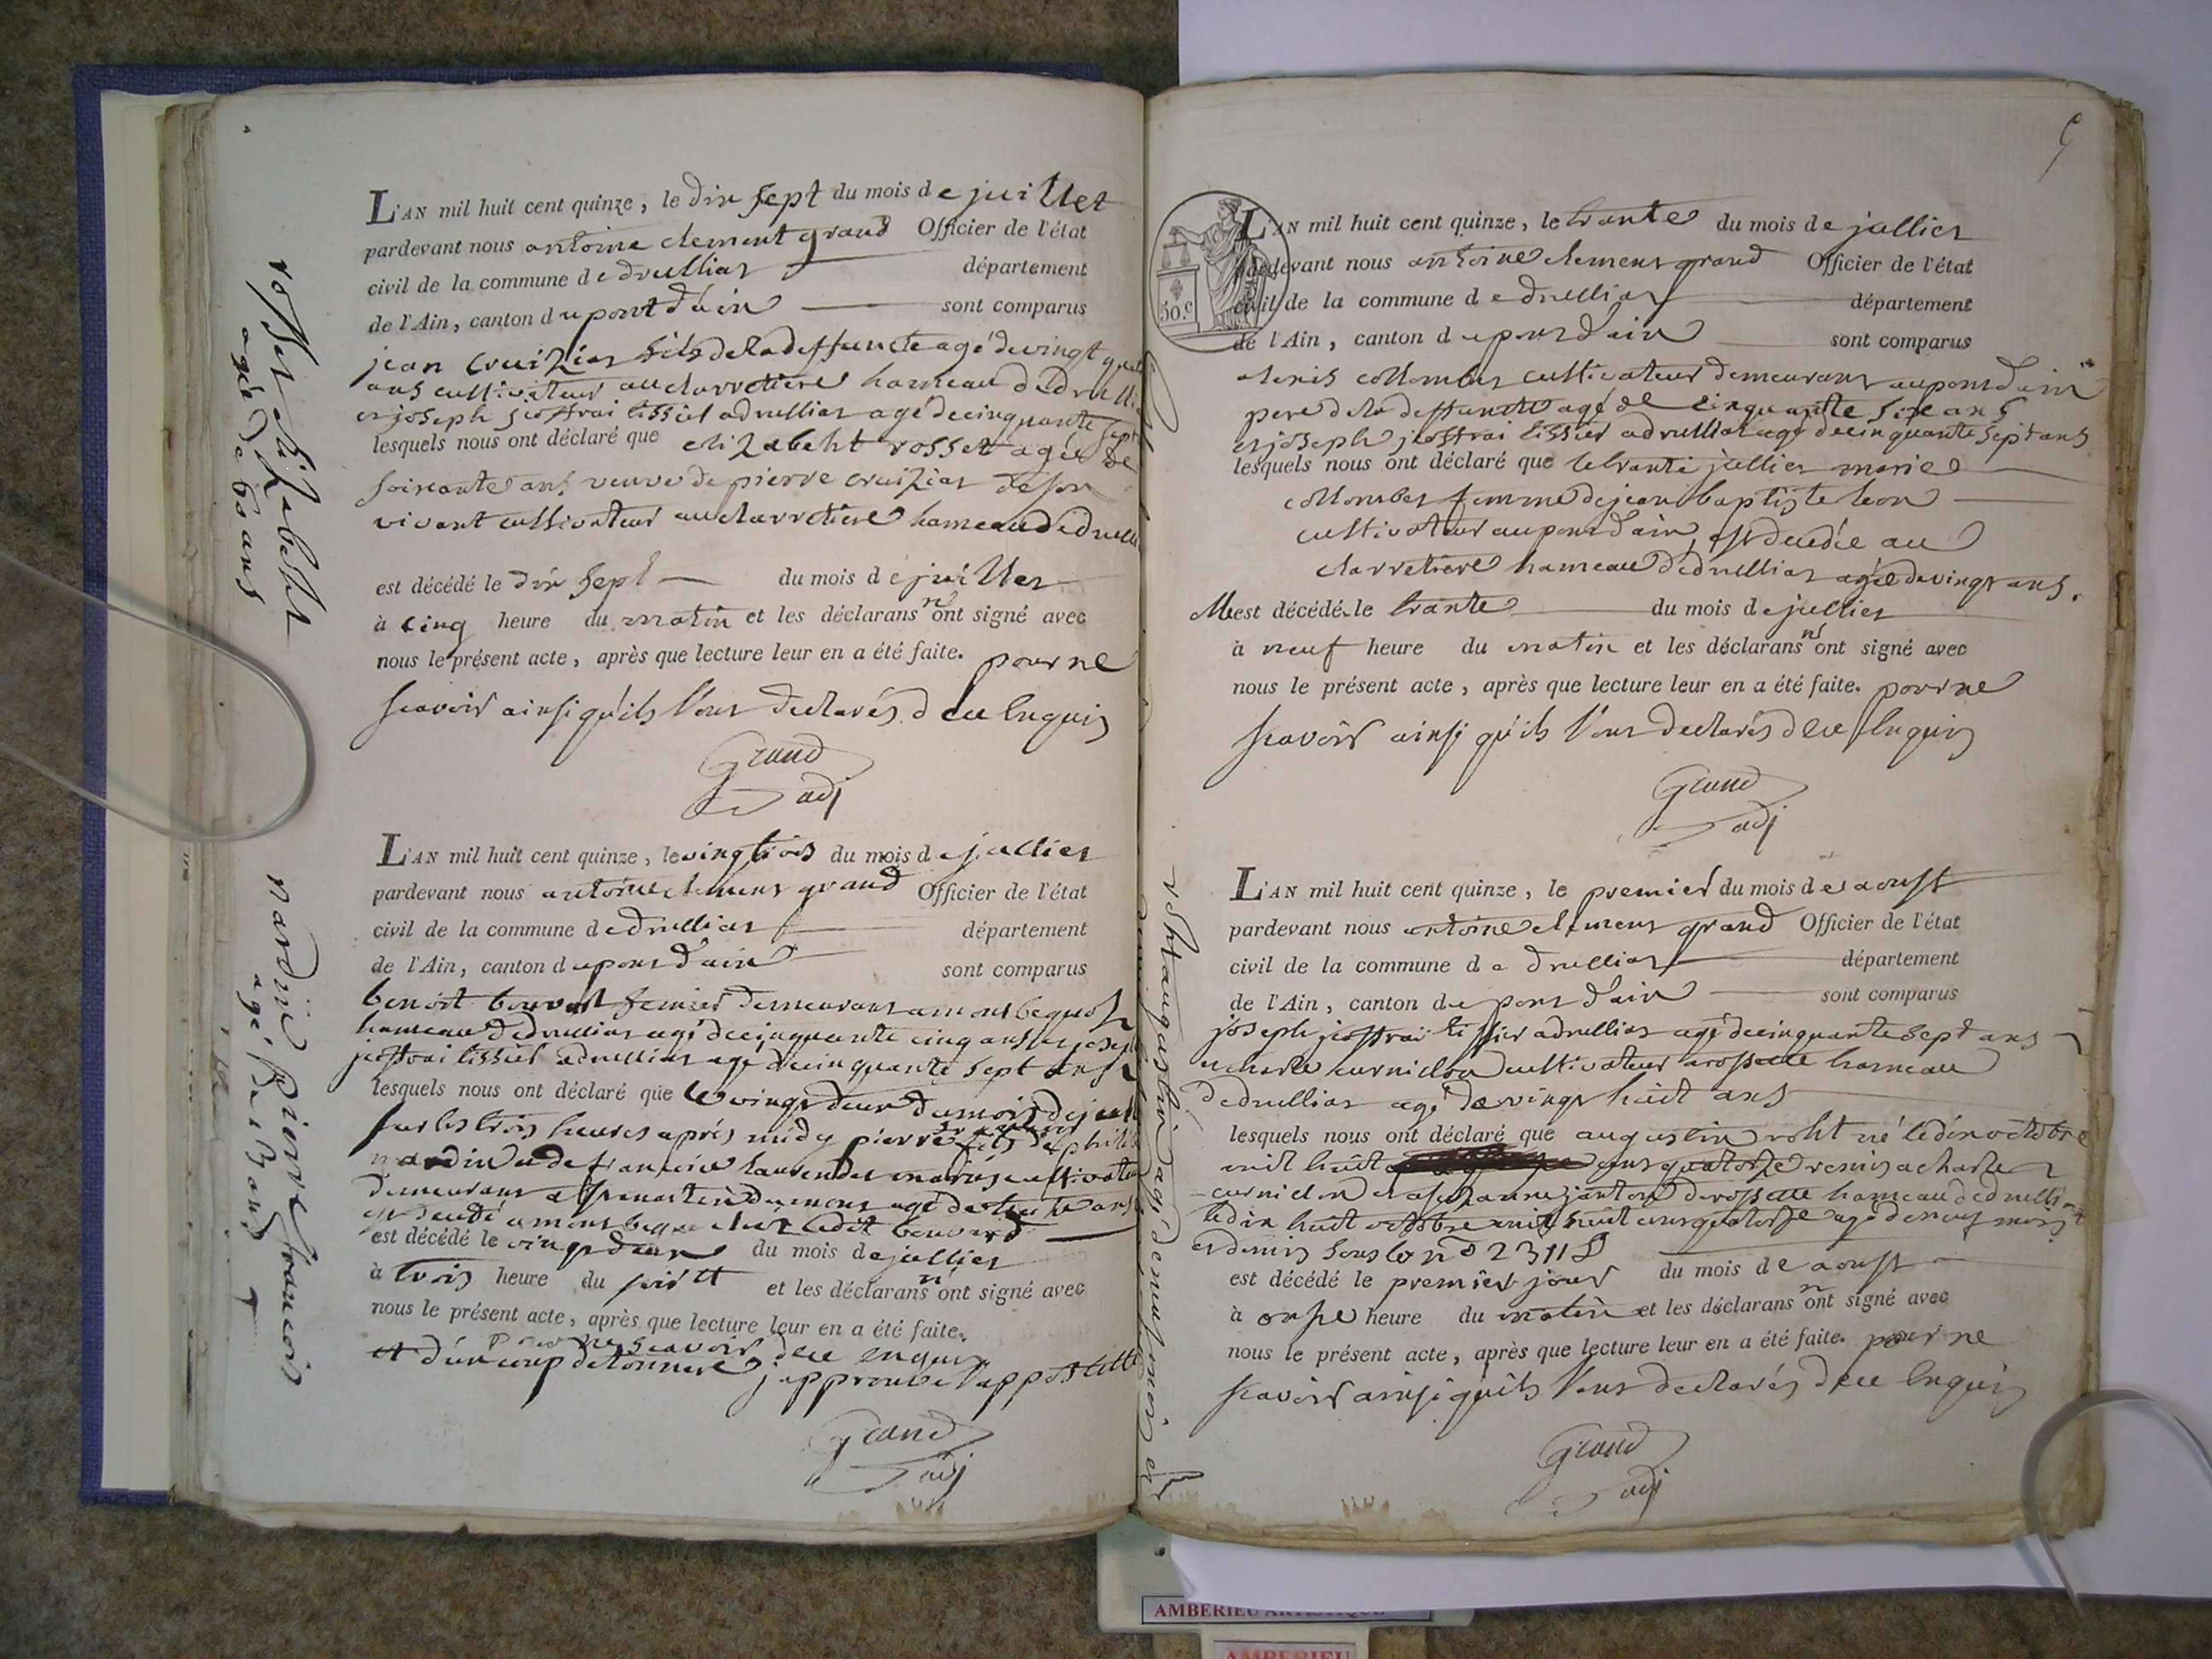 rosset elizabeht
agée de 60 ans
L'AN mil huit cent quinze, le dix sept du mois de juillet
pardevant nous antoine clement grand Officier de l'état
civil de la commune de druilliat département
de l'Ain, canton du pont d'ain sont comparus
jean cruiziat fils de la deffuncte agé de vingt
ans cultivateur au clarretiere hameau de
et joseph jeoffrai tissier a druilliat agé de cinquante sept
lesquels nous ont déclaré que elizabeht rosset agée de
soixante ans veuve de pierre cruiziat de son
vivant cultivateur au clarretiere hameau de
est décédé le dix sept du mois de juillet
à cinq heure du matin et les déclarans n'ont signé avec
nous le présent acte, après que lecture leur en a été faite. pour ne
scavoir ainsi qu'ils l'ont declarés de ce enquis
Grand
adj
nardin Pierre francois
agé de 13 ans
L'AN mil huit cent quinze, le vingtrois du mois de juillet
pardevant nous antoine clement grand Officier de l'état
civil de la commune de druilliat département
de l'Ain, canton du pont d'ain sont comparus
benoit bouvard fermier demeurant a mont
hameau de druilliat agé de cinquante cinq ans et joseph
jeoffrai tissier a druilliat agé de cinquante sept ans
lesquels nous ont déclaré que le vingt deux du mois de
sur les trois heures après midy pierre francois fils de
nardin et de francoise mariés cultivateur
demeurant a agé de treize ans
est decedé a mont chez ledit bouvard
est décédé le vingt deux du mois de juillet
à trois heure du soir et les déclarans n'ont signé avec
nous le présent acte, après que lecture leur en a été faite.
pour ne scavoir de ce enquis
et d'un coup de tonnere j'approuve l'appostille
Grand
adj
L'AN mil huit cent quinze, le trante du mois de juillet
pardevant nous antoine clement grand Officier de l'état
civil de la commune de druilliat département
de l'Ain, canton du pont d'ain sont comparus
50.c
alexis collombet cultivateur demeurant au pont d'ain
pere de la deffuncte agé de cinquante six ans
et joseph jeoffrai tissier a druilliat agé de cinquante sept ans
lesquels nous ont déclaré que le trante juillet marie
collombet femme de jean baptiste
cultivateur au pont d'ain, est decedée au
clarretiere hameau de druilliat agée de vingt ans.
est décédé le trante du mois de juillet
à neuf heure du matin et les déclarans n'ont signé avec
nous le présent acte, après que lecture leur en a été faite. pour ne
scavoir ainsi qu'ils l'ont declarés de ce enquis
Grand
adj
augustin agé de neuf mois et
L'AN mil huit cent quinze, le premier du mois de aoust
pardevant nous antoine clement grand Officier de l'état
civil de la commune de druilliat département
de l'Ain, canton du pont d'ain sont comparus
joseph jeoffrai tissier a druilliat agé de cinquante sept ans
et charle curnillon cultivateur a rossette hameau
de druilliat agé de vingt huit ans
lesquels nous ont déclaré que augustin né le dix octobre
mil huit cent quatorze remis a charle
curnillon et a suzanne janton de rossette hameau de
le dix huit octobre mil huit cent quatorze agé de neuf mois
et demis sous le n° 2311
est décédé le premier jour du mois de aoust
à onse heure du matin et les déclarans n'ont signé avec
nous le présent acte, après que lecture leur en a été faite. pour ne
scavoir ainsi qu'ils l'ont declarés de ce enquis
Grand
adj
AMBERIEU